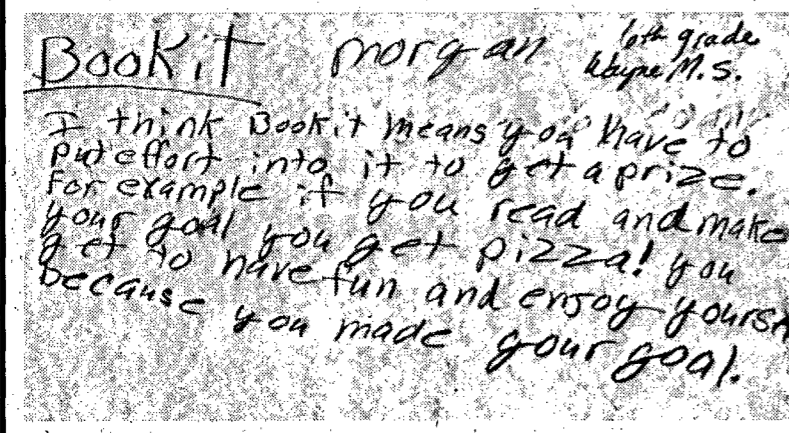 Bookit morgan 6th grade
Wayne M.S.
I think Bookit means you have to
put effort into it to get a prize.
For example if you read and make
your goal you get pizza! you
get to have fun and enjoy yourse
because you made your goal.